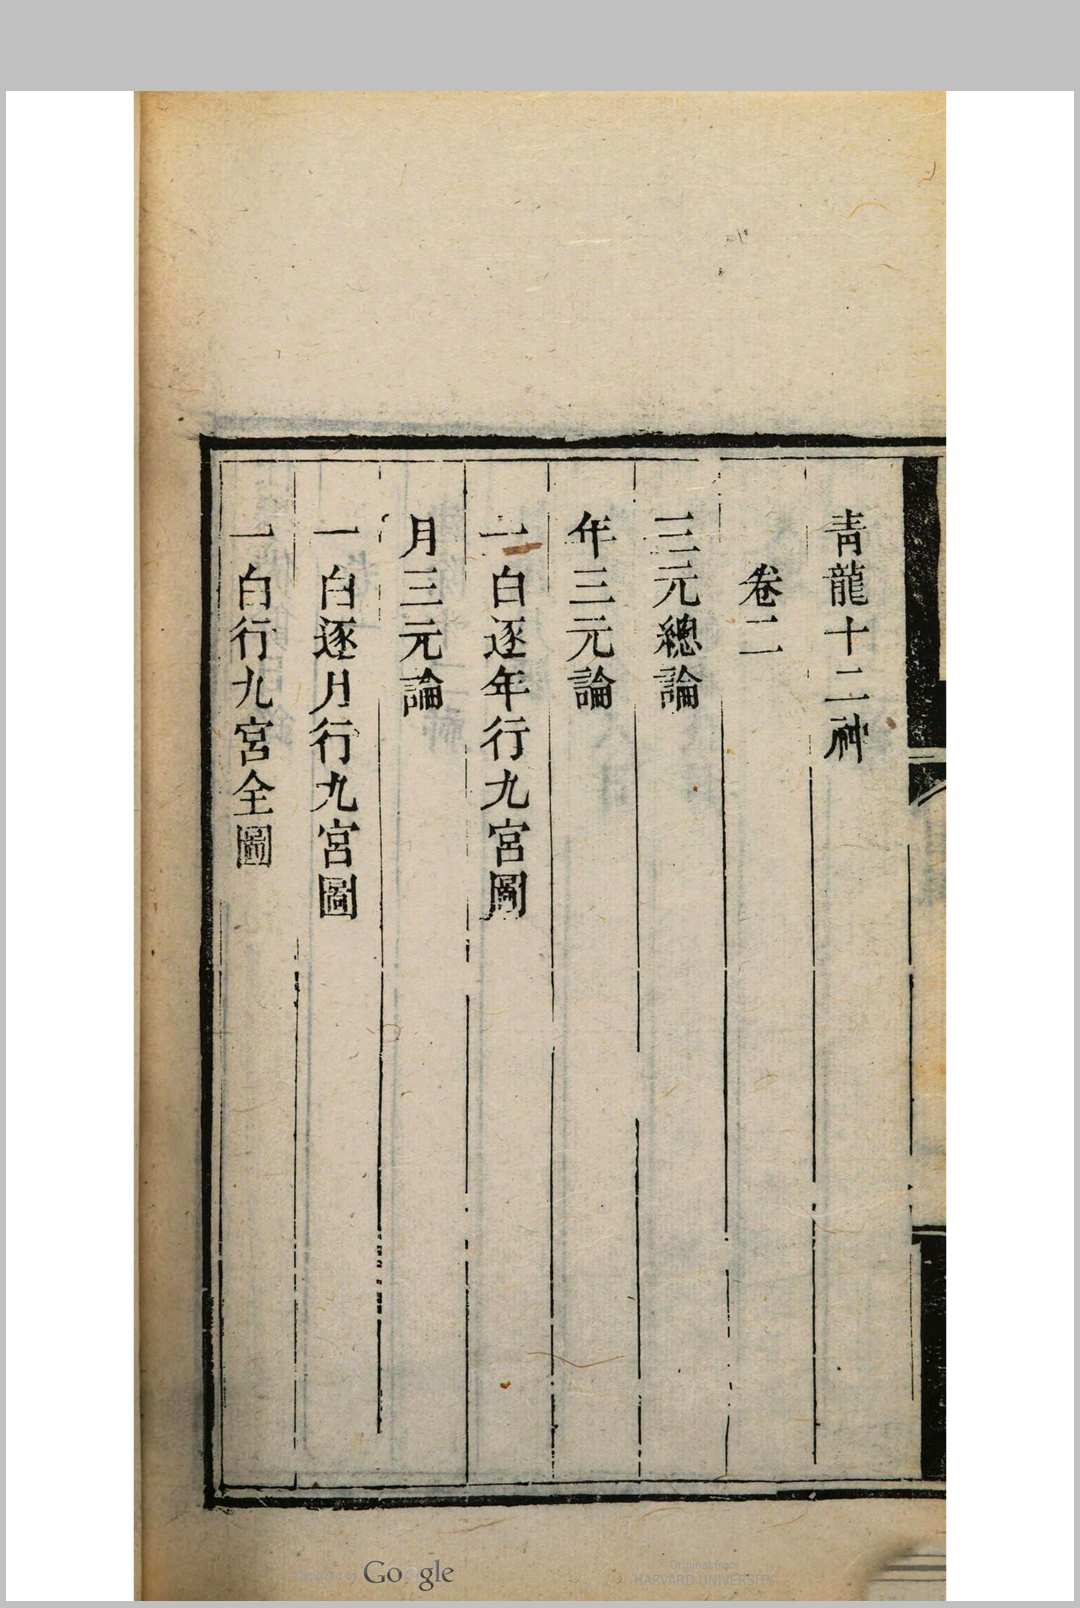 青龍十二神
卷二
三元總論
年三元論
一白逐年行九宮圖
月三元論
一白逐月行九宮圖
一白行九宮全圖
Digitized by Google
Original from
HARVARD UNIVERSITY